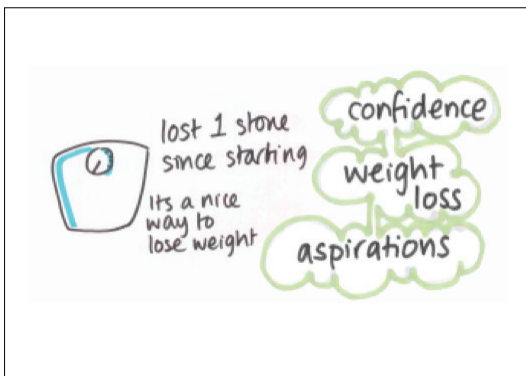 lost 1 stone
since starting
Its a nice
way to
lose weight
confidence
weight
loss
aspirations